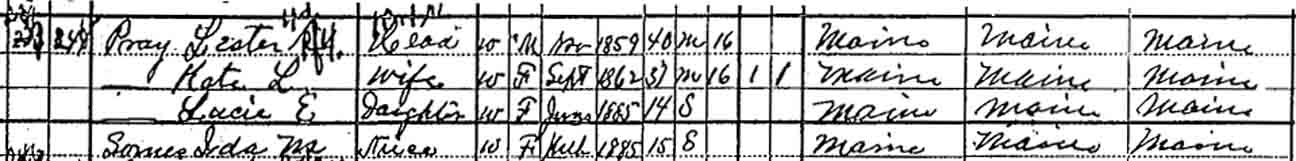 248 Pray Lester Head W M Nov 1859 40 M 16 Maine Maine Maine
— Kate L Wife W F Sept 1862 37 M 16 1 1 Maine Maine Maine
— Lucie E Daughter W F June 1885 14 S Maine Maine Maine
Somes Ida M Niece W F Feb 1885 15 S Maine Maine Maine